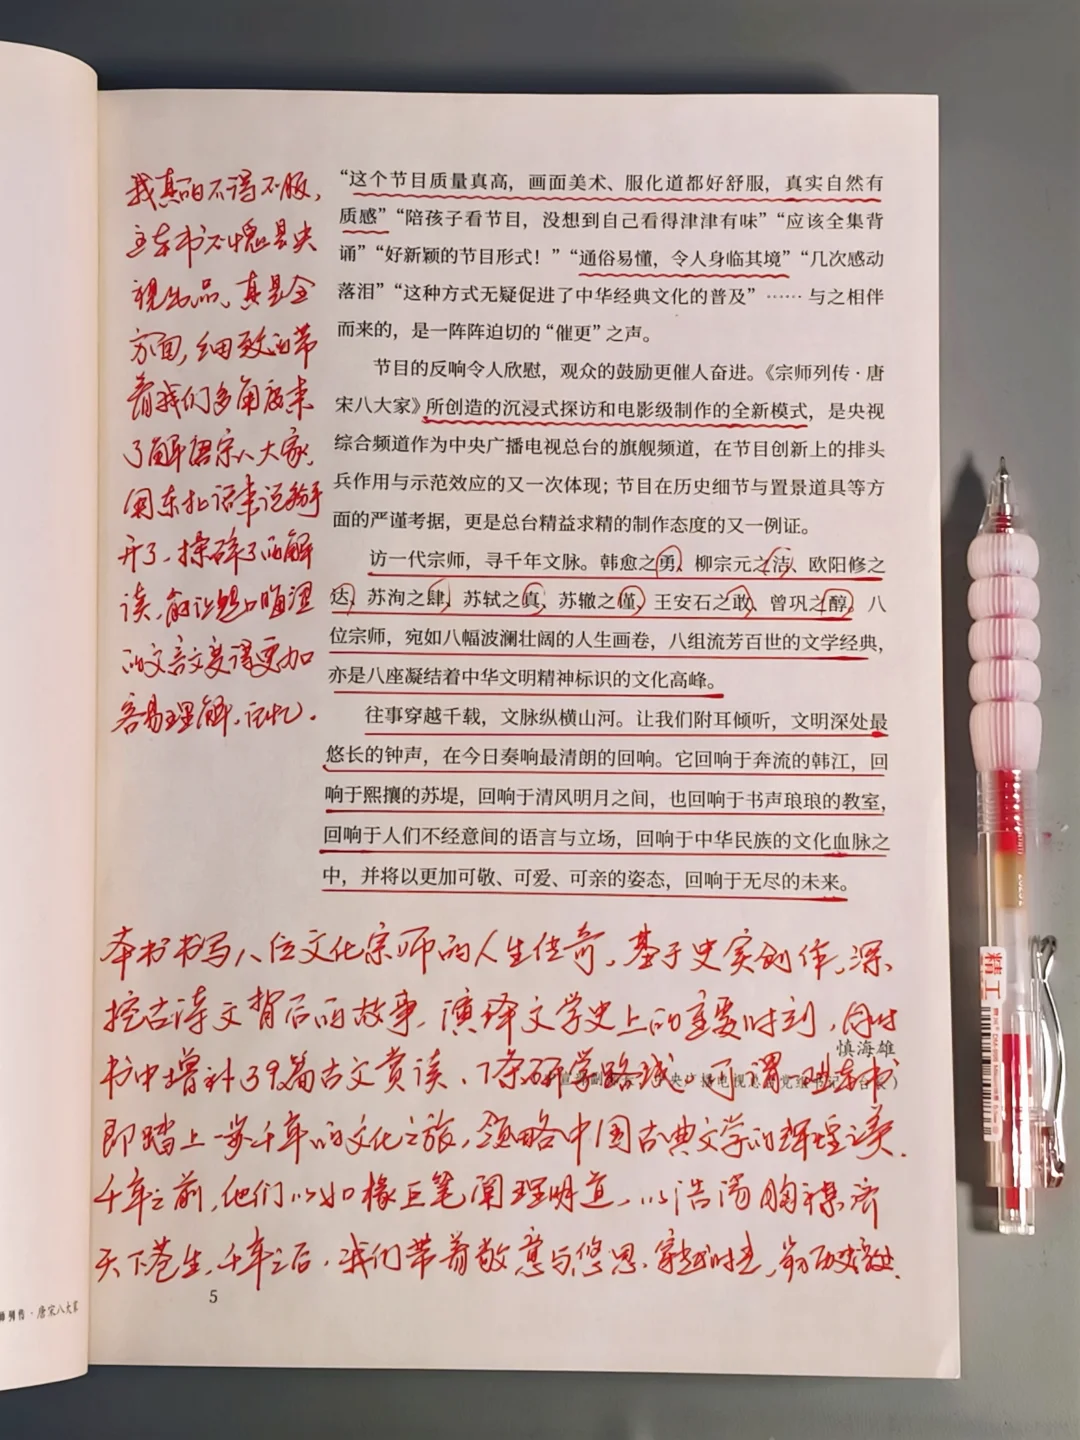 “这个节目质量真高，画面美术、服化道都好舒服，真实自然有
质感”“陪孩子看节目，没想到自己看得津津有味”“应该全集背
诵”“好新颖的节目形式！”“通俗易懂，令人身临其境”“几次感动
落泪”“这种方式无疑促进了中华经典文化的普及”……与之相伴
而来的，是一阵阵迫切的“催更”之声。
节目的反响令人欣慰，观众的鼓励更催人奋进。《宗师列传·唐
宋八大家》所创造的沉浸式探访和电影级制作的全新模式，是央视
综合频道作为中央广播电视总台的旗舰频道，在节目创新上的排头
兵作用与示范效应的又一次体现；节目在历史细节与置景道具等方
面的严谨考据，更是总台精益求精的制作态度的又一例证。
访一代宗师，寻千年文脉。韩愈之勇、柳宗元之洁、欧阳修之
达、苏洵之肆、苏轼之真、苏辙之僅、王安石之敢、曾巩之醇，八
位宗师，宛如八幅波澜壮阔的人生画卷，八组流芳百世的文学经典，
亦是八座凝结着中华文明精神标识的文化高峰。
往事穿越千载，文脉纵横山河。让我们附耳倾听，文明深处最
悠长的钟声，在今日奏响最清朗的回响。它回响于奔流的韩江，回
响于熙攘的苏堤，回响于清风明月之间，也回响于书声琅琅的教室，
回响于人们不经意间的语言与立场，回响于中华民族的文化血脉之
中，并将以更加可敬、可爱、可亲的姿态，回响于无尽的未来。
慎海雄
我真的不得不服，
这本书不愧是央
视出品，真是全
方面，细致的带
着我们多角度来
了解唐宋八大家，
用东北话来说掰
开了，揉碎了的解
读，能让晦涩
的文言文变得更加
容易理解、记忆。
本书书写八位文化宗师的人生传奇，基于史实创作，深
挖古诗文背后的故事，演绎文学史上的重要时刻，同时
书中增补39篇古文赏读、7条研学路线。可谓一书
即踏上一步千年的文化之旅，领略中国古典文学的辉煌
千年之前，他们以如椽巨笔阐理明道，以浩荡胸襟济
天下苍生，千年之后，我们带着敬意与悠思，穿越时光，
5
师列传·唐宋八大家
精工